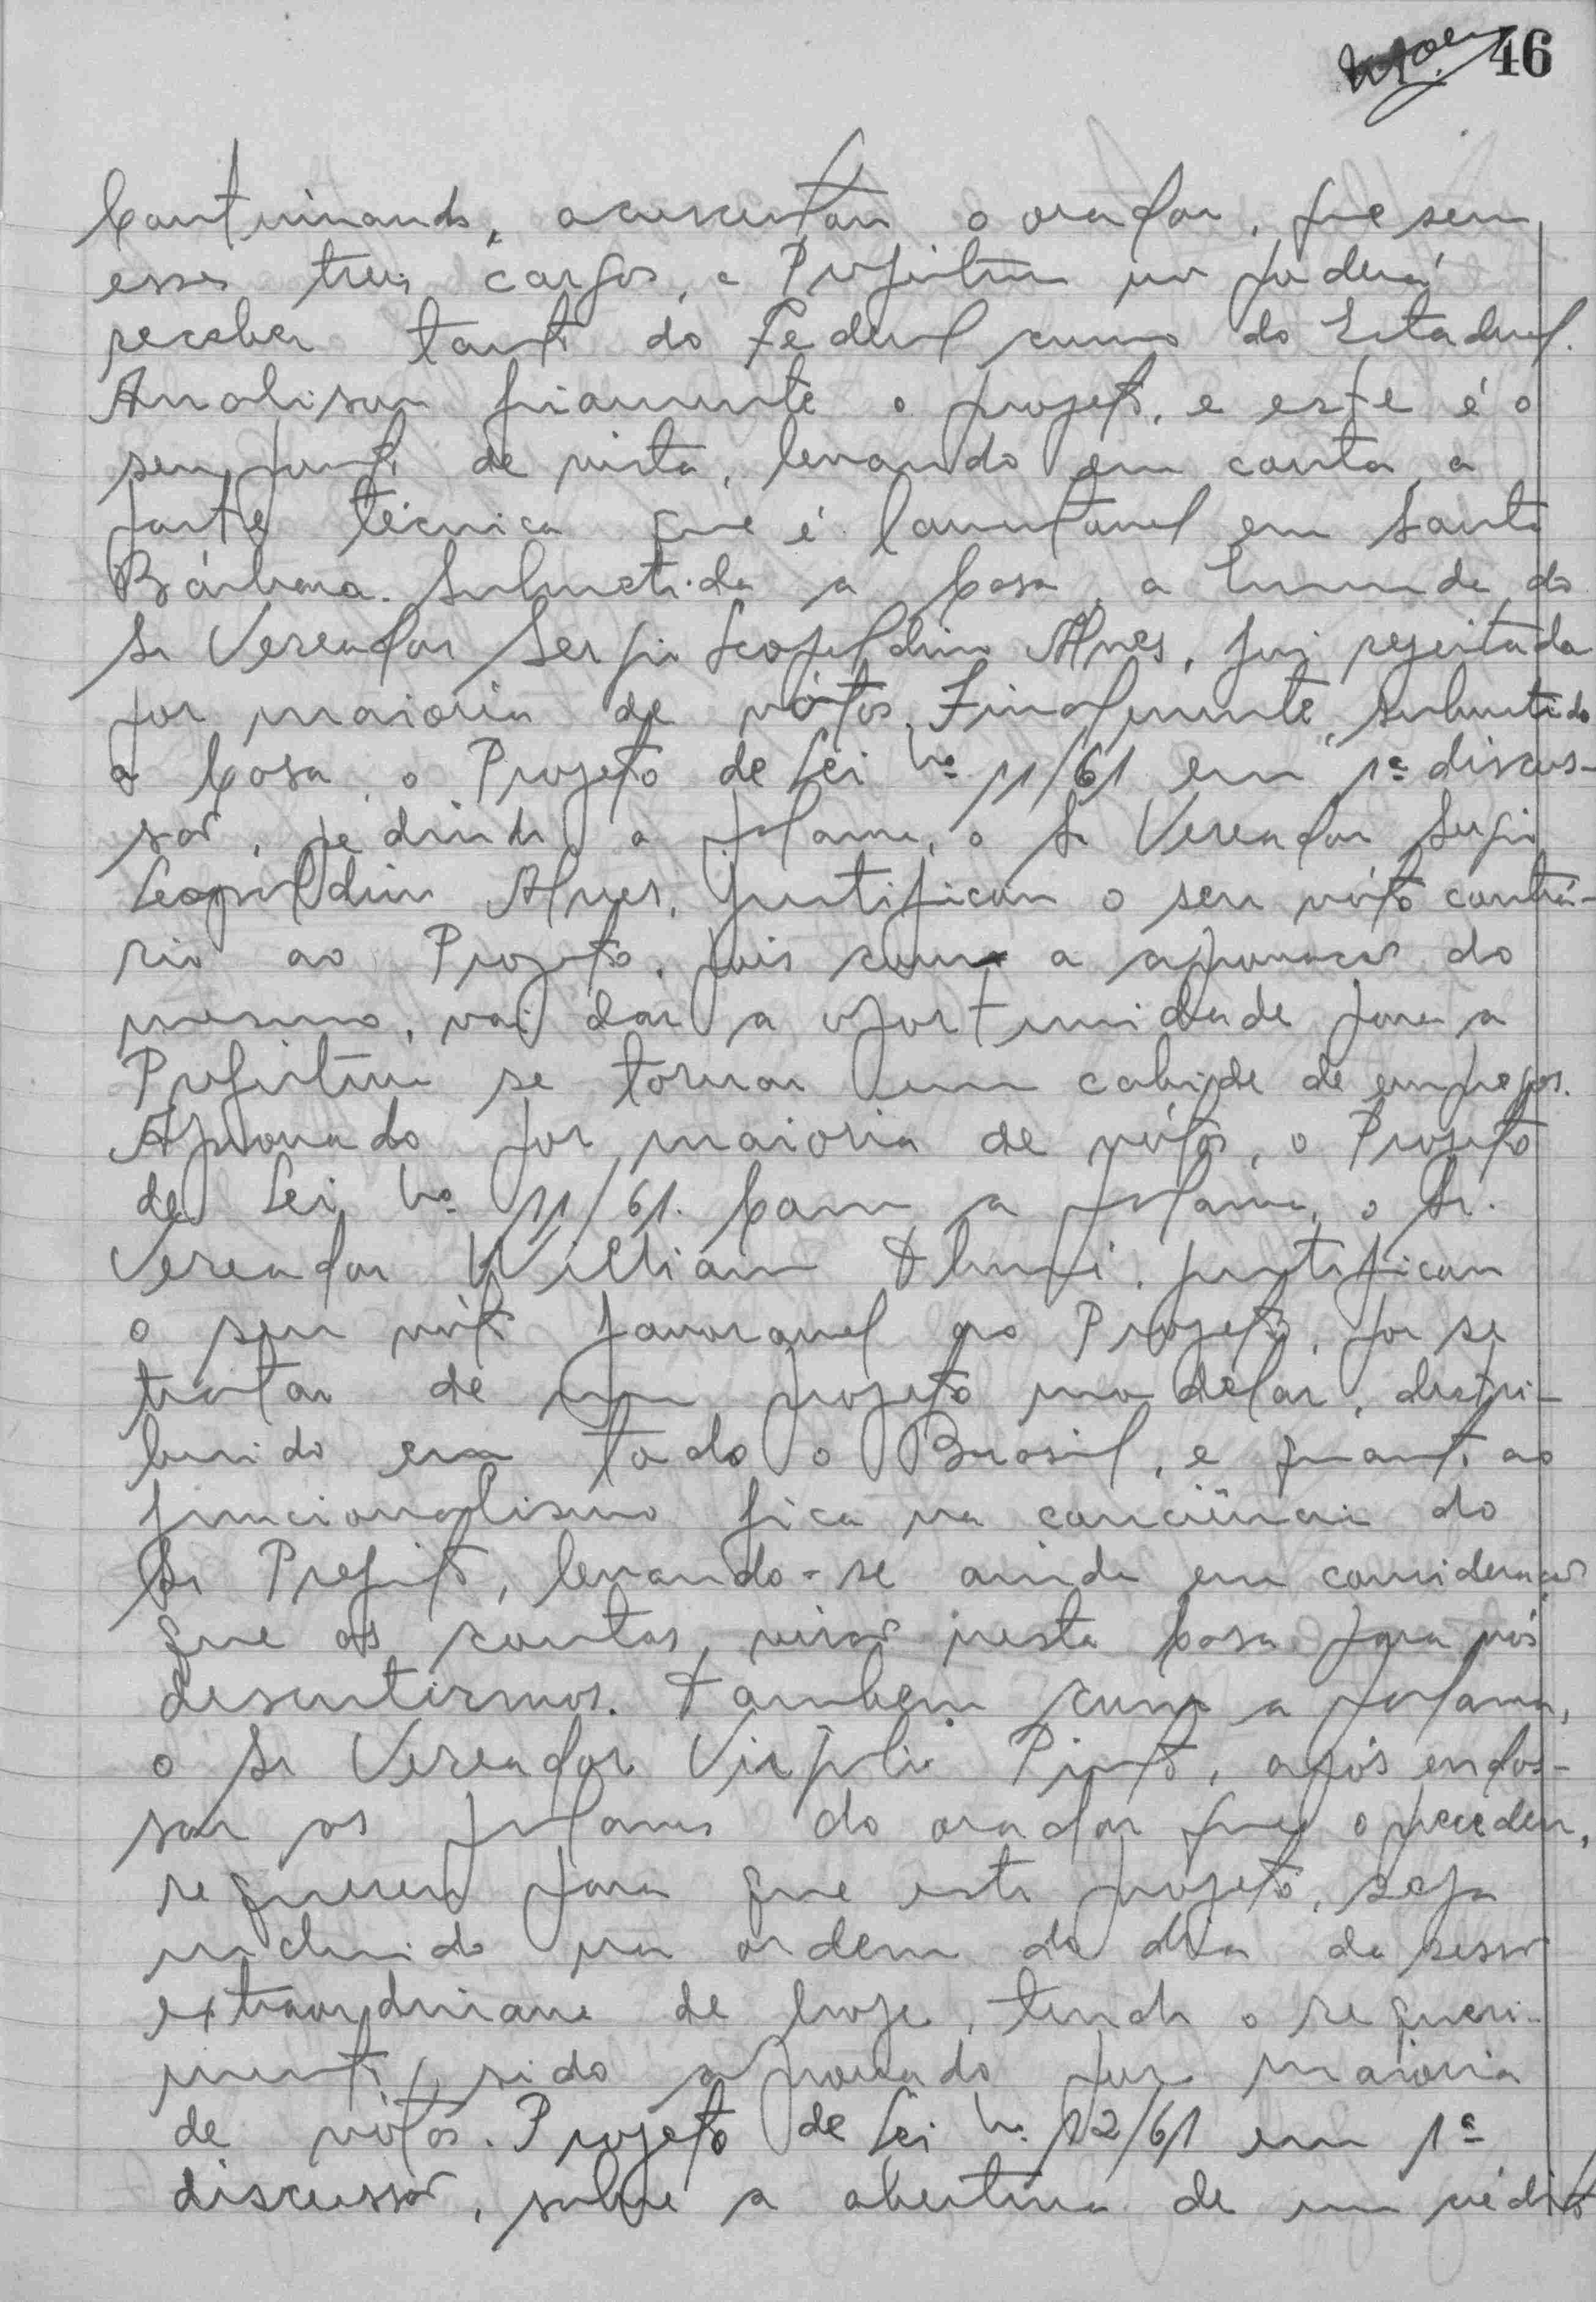 46
Continuando, acrescentou o orador, que sem
esses treis cargos, a Prefeitura não poderá
receber tanto do Federal como do Estadual.
Analisou friamente o projeto, e este é o
seu ponto de vista, levando em conta, a
parte técnica que é lamentavel em Santa
Bárbara. Submetida a Casa, a Emenda do
Sr Vereador Sergio Leopoldino Alves, foi rejeitada
por maioria de vótos. Finalmente, submetido
a Casa, o Projeto de Lei nº 11/61 em 1ª discus-
são, pedindo a palavra, o Sr Vereador Sergio
Leopoldino Alves, justificou o seu vóto contrá-
rio ao Projeto, pois com a aprovação do
mesmo, vai dar a oportunidade para a
Prefeitura se tornar um cabide de empregos.
Aprovado por maioria de vótos, o Projeto
de Lei nº 11/61. Com a palavra, o Sr.
Vereador William justificou
o seu vóto favoravel ao Projeto, por se
tratar de um projeto modelar, distri-
buido em todo o Brasil, e quanto ao
funcionalismo fica na conciência do
Sr Prefeito, levando-se ainda em consideração
que as contas, virão nesta Casa para nós
discutirmos. Tambem com a palavra,
o Sr Vereador Virgilio Pinto, após endos-
sar as palavras do orador que o precedeu,
requereu para que este projeto, seja
incluido na ordem do dia da sessão
extraordinaria de hoje, tendo o requeri-
mento, sido aprovado por maioria
de vótos. Projeto de Lei nº 12/61 em 1ª
discussão, sobre a abertura de um crédito